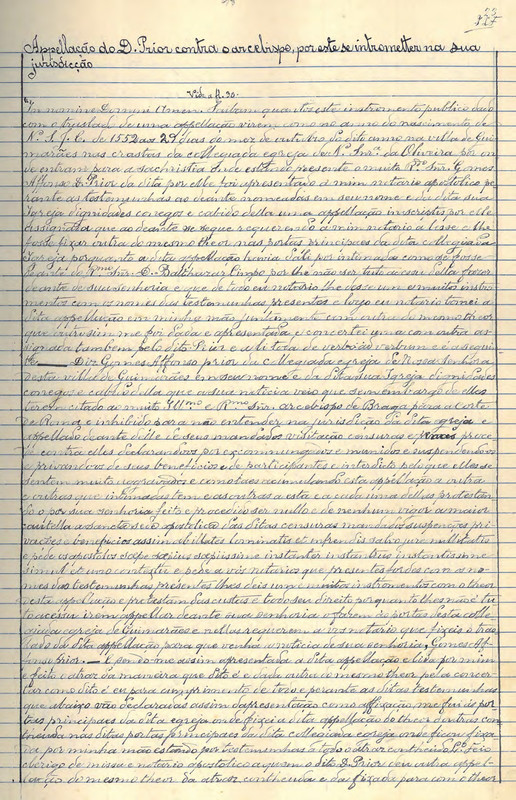 Appellação do D. Prior contra o arcebispo, por este se intrometter na sua
jurisdicção
Vide a fl. 30.
In nomine Domini Amen. Saibam quantos este instromento publico dado
com o treslado de uma appellação virem, como no anno do nascimento de
N. S. J. C. de 1552 aos 29 dias do mez de outubro do dito anno na villa de Gui
marães nas crastas da collegiada egreja de N. Snr.ª da Oliveira por on
de entram para a sachristia, sendo estando presente o muito Snr. Gomes
Affonso D. Prior da dita por elle foi apresentado a mim notario apostolico pe
rante as testemunhas ao deante nomeadas em seu nome e da dita sua
Igreja dignidades conegos e cabido della uma appellação inscriptis por elle
assignada que ao deante se segue requerendo a mim notario a lesse e lh'a
fosse fixar outra do mesmo theor nas portas principaes da dita collegiada
Igreja porquanto a dita appellação havia dita por intimada como de
de Rmo Snr. D. Balthazar Limpo por lhe não ser
deante de sua senhoria e que de todo eu notario lhe desse um e muitos instru
mentos com os nomes das testemunhas presentes e logo eu notario tomei a
dita appellação em minha mão juntamente com outra do mesmo theor
que outrosim me foi dada e apresentada e concertei uma com outra as
signada tambem pelo dito Prior e a li toda de verbo ad verbum e é a segui
te. — Diz Gomes Affonso prior da collegiada egreja de Nossa Senhora
desta villa de Guimarães em seu nome e da dita sua Igreja dignidades
conegos e cabido della que a sua noticia veio que sem embargo de elles
terem citado ao muito Illmo e Rmo Snr. arcebispo de Braga para a côrte
de Roma e inhibido para não entender na jurisdicção da dita egreja e
appellado deante d'elle de seus mandados visitação censuras e
contra elles declarando-os por excommungados e e suspendendo-os
e privando-os de seus beneficios e de participantes e interdicto pelo que elles se
sentem muito aggravados e como taes accumulando esta appellação a outra
e outras que interpostas tem e as outras a esta e a cada uma dellas protestan
do o por sua senhoria feito e procedido ser nullo e de nenhum vigor a maior
cautella a sancta sé apostolica das ditas censuras mandados suspenções pri
vações e beneficios assim
e pede os apostolos sæpe sæpius sæpissime instanter instantius instantissime
simul et uno contextu e pede a vós notario que presentes sondes com os no
mes das testemunhas presentes lhes deis um e muitos instrumentos com o theor
desta appellação e protestam das custas e todo seu direito porquanto lhes não é tu
to accesso irem appellar deante sua senhoria e fazem ás portas desta colle
giada egreja de Guimarães e nellas requerem a vós notario que fixeis o tras
lado da dita appellação para que venha á noticia de sua senhoria, Gomes Af
fonso prior. — E sendo-me assim apresentada a dita appellação e lida por mim
e feito o atraz da maneira que dito é e dada outra do mesmo theor pela concer
tar como dito é eu para cumprimento de tudo e perante as ditas testemunhas
que abaixo vão declaradas assim da apresentação como affixação, me fui ás por
tas principaes da dita egreja onde fixei a dita appellação do theor d'outras con
theuda nas ditas portas principaes da dita collegiada egreja onde ficou fixa
da por minha mão estando por testemunhas a todo o atraz contheudo
clerigo de missa e notario apostolico a quem o dito D. Prior deu outra appel
lação do mesmo theor da atraz contheuda e da fixada para com o theor